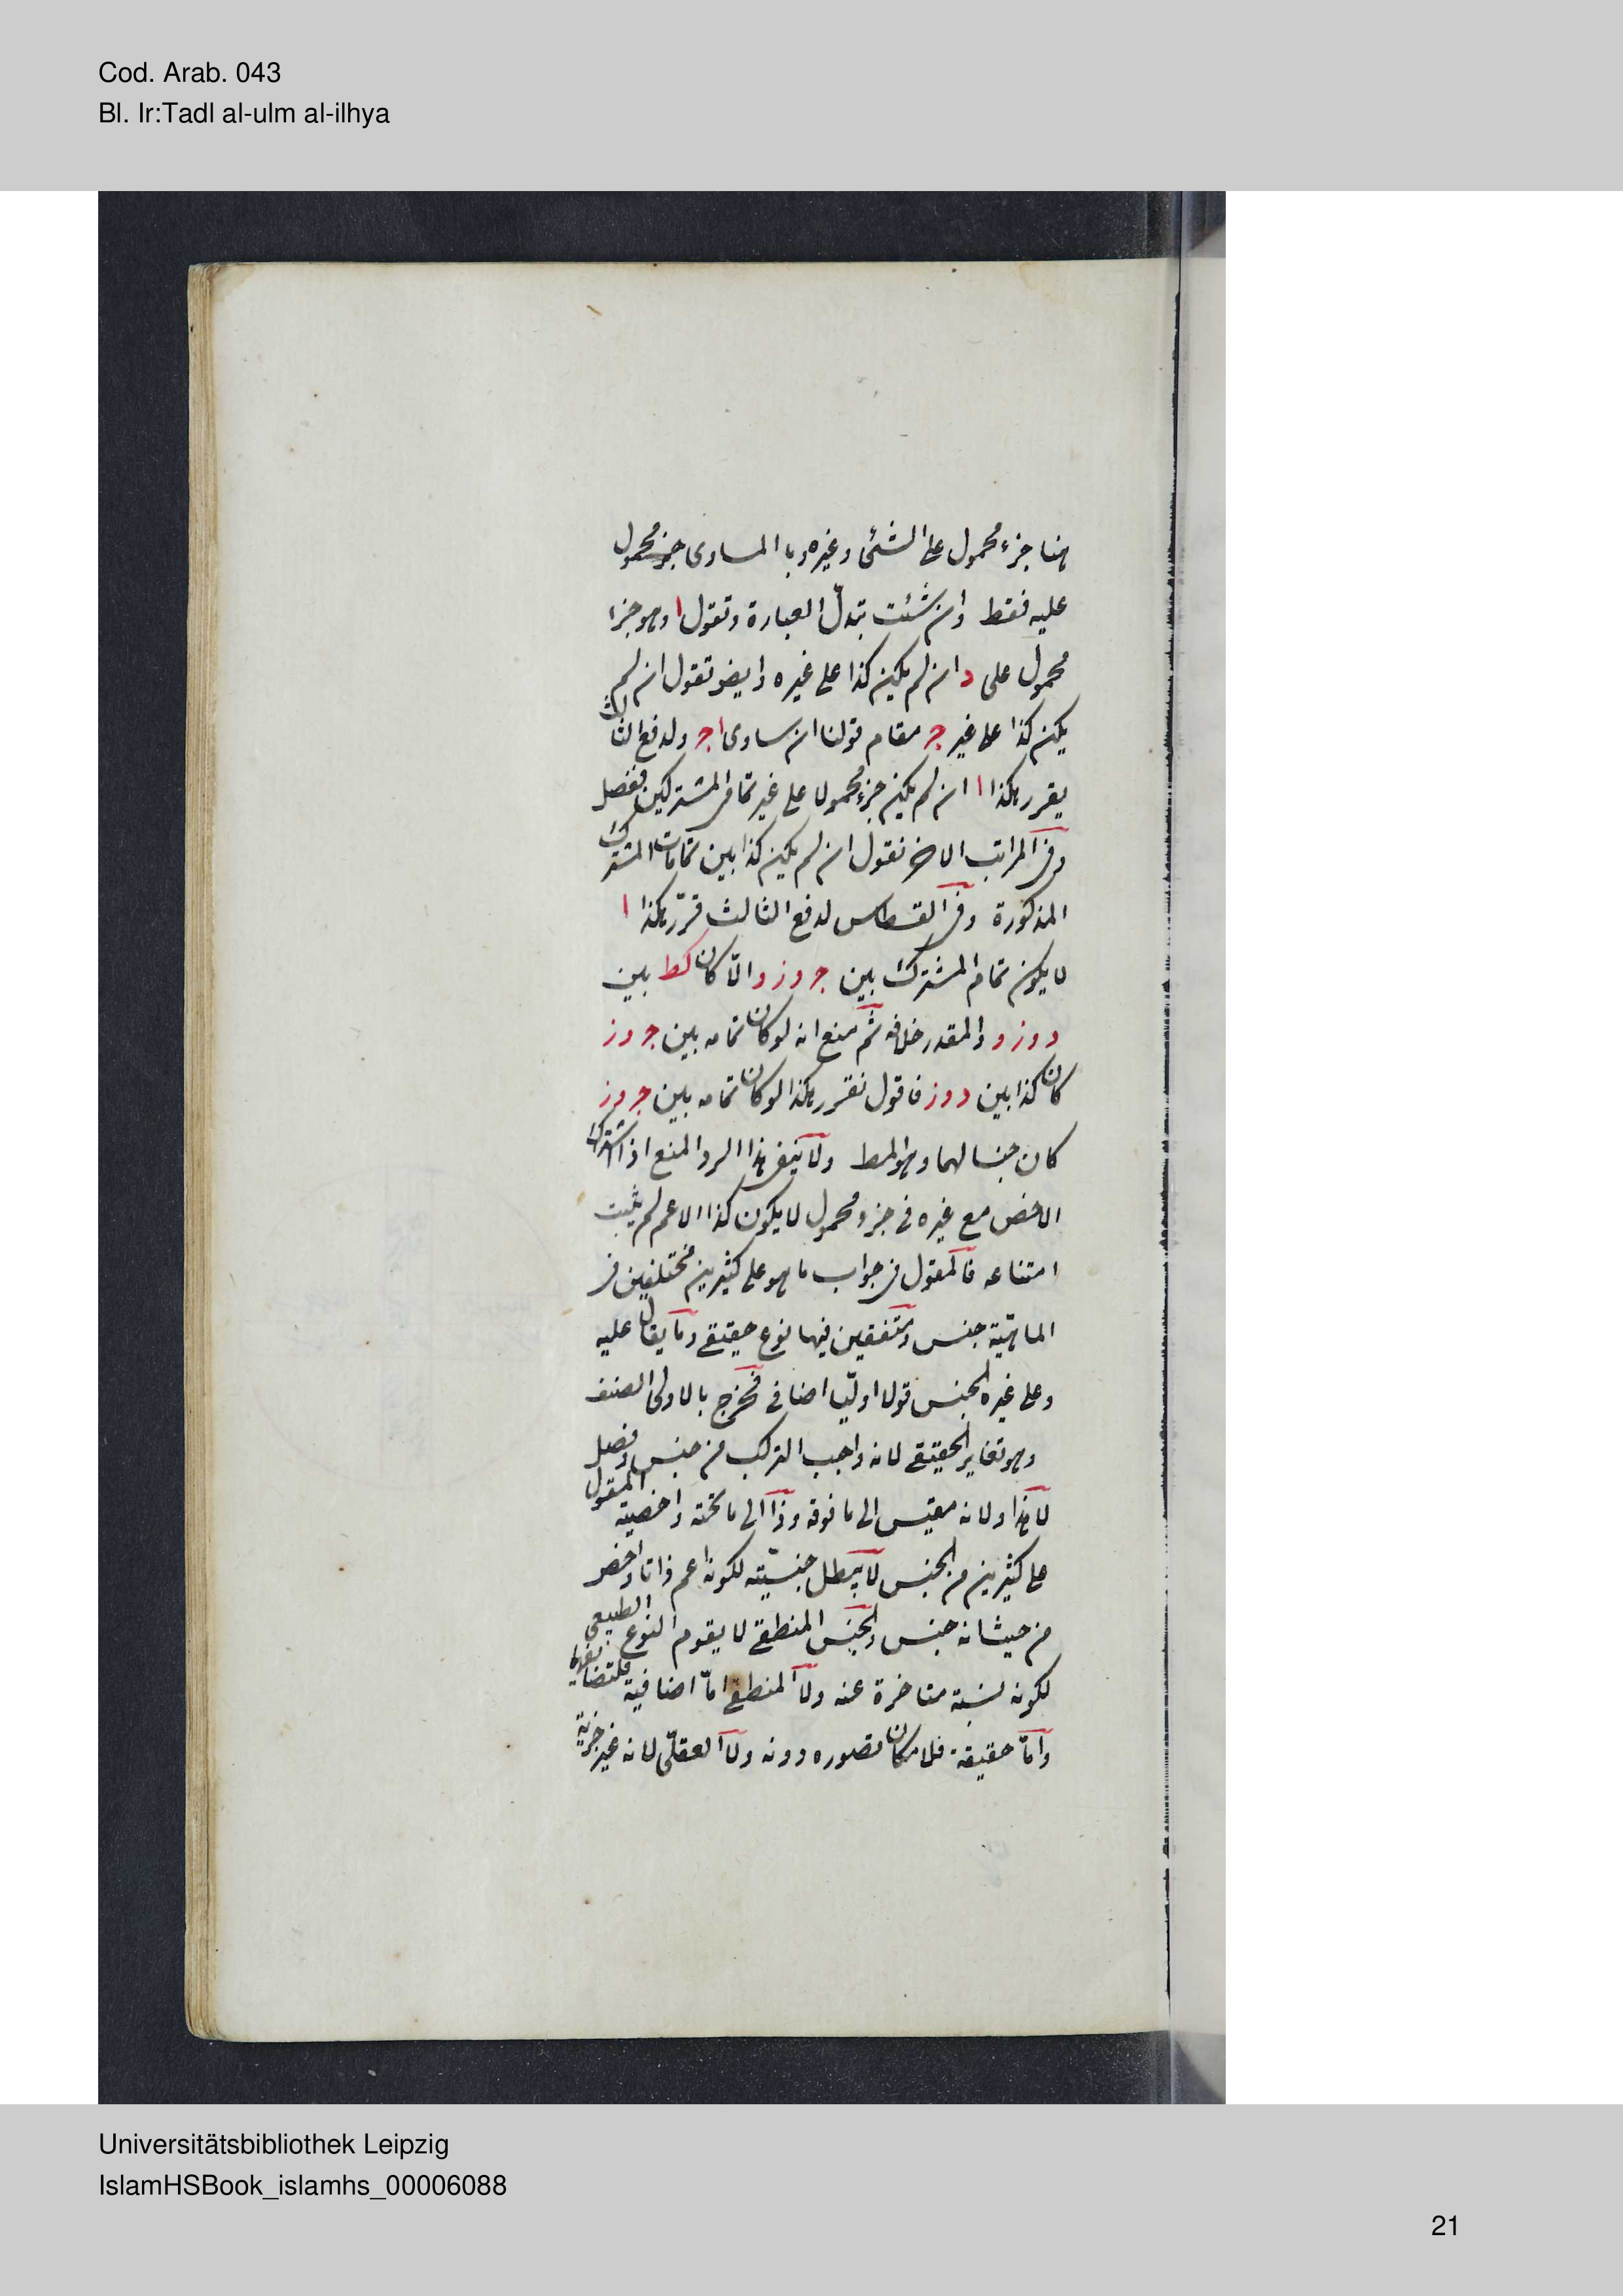 Cod. Arab. 043
Bl. Ir:Tadl al-ulm al-ilhya
هنا جزء محمول على الشئ وغيره وبا المساوى جزء محمول
عليه فقط وان شئت تبدل العبارة وتقول ا وهو جزا
محمول على د ان لم يكن كذا على غيره وايضو تقول ان لم
يكن كذا على غير ج مقام قولنا ان ساوى ا ج ولدفع الثالث
يقرر هكذا ا ان لم يكن جزء محمولا على غير تمام المشتركين ففصل
وفى المراتب الاخر نقول ان لم يكن كذا بين تمامات المشترك
المذكورة وفى القسطاس لدفع الثالث قرر هكذا ا
لا يكون تمام المشترك بين ج و ز والا كان كط بين
د و ز و والمقدر خلافه ثم منع انه لو كان تمامه بين ج و ز
كان كذا بين د و ز فاقول نقرر هكذا لو كان تمامه بين ج و ز
كان جنسا لهما وهو المط ولا ينفى هذا الرد المنع اذ اشتراك
الاخص مع غيره فى جزء محمول لا يكون كذا الاعم لم يثبت
امتناعه فالمقول فى جواب ما هو على كثيرين مختلفين فى
الماهية جنس ومتفقين فيها نوع حقيقى وما يقال عليه
وعلى غيره الجنس قولا اوليا اضافى فخرج بالاولى الصنف
وهو تغاير الحقيقى لانه واجب التركب من جنس وفصل
لا هذا ولانه مقيس الى ما فوقه وذا الى ما تحته واخصية المقول
على كثيرين من الجنس لا يبطل جنسيته لكونه اعم ذاتا واخص
من حيث انه جنس والجنس المنطقى لا يقوم النوع الطبيعى
لكونه نسبة متاخرة عنه ولا المنطقى اما اضافية
واما حقيقة فلامكان تصوره دونه ولا العقلى لانه غير جزئية
Universitätsbibliothek Leipzig
IslamHSBook_islamhs_00006088
21